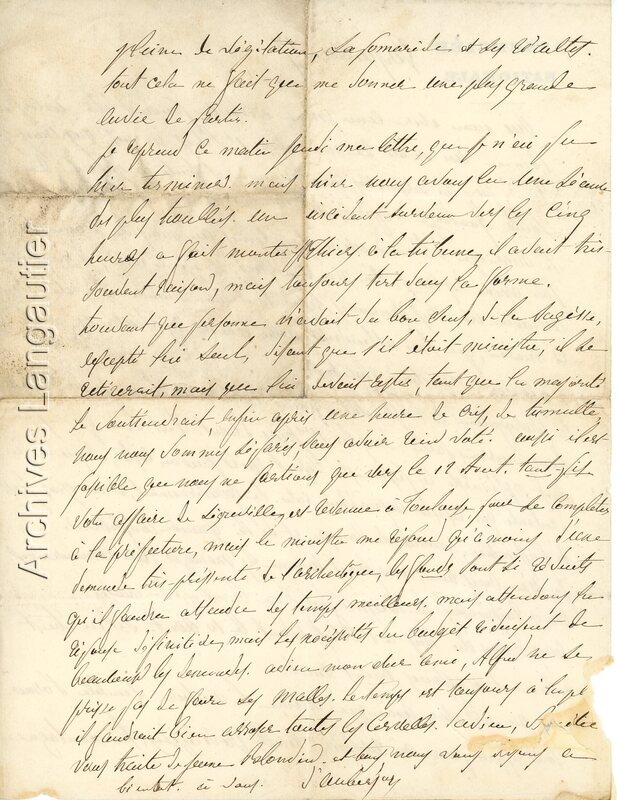 pleine de végétation, La Pomarède et ses récoltes.
tout cela ne fait que me donner une plus grande
envie de partir.
je reprend ce matin jeudi ma lettre, que je n'ai pu
hier terminer. mais hier nous avons eu une séance
des plus troublés. un incident survenu vers les cinq
heures a fait monter Mr Thiers à la tribune, il avait très-
souvent raison, mais toujours tort dans la forme.
trouvant que personne n'avait du bon sens, de la sagesse,
excepté lui seul, disant que s'il était ministre, il se
retirerait, mais que lui devait rester, tant que la majorité
le soutiendrait enfin après une heure de cris, de tumulte,
nous nous sommes séparés, sans avoir rien voté. aussi il est
possible que nous ne partions que vers le 12 Aout. tant-pis
votre affaire de Légueville, est revenue à Toulouse pour se compléter
à la préfecture, mais le ministre me répond qu'à moins d'une
demande très-pressente de l'archevêque, les fonds sont si réduits
qu'il faudra attendre des temps meilleurs. mais attendons la
réponse définitive, mais les nécessités du budget réduisent de
beaucoup les demandes. adieu mon cher ami, Alfred ne se
presse pas de faire ses malles. le temps est toujours à la pluie
il faudrait bien arroser toutes les
vous traite de jeune Blondin. et tous nous vous disons a
bientot. à vous. d'Auberjon
Archives Langautier